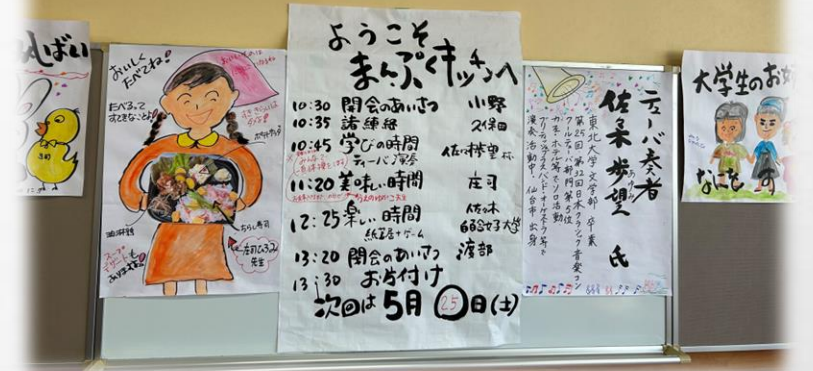 しばい
おいしく
たべてね!
たべるって
すてきなことよ!
ちらし寿司
庄司ひろみ
先生
スープ
デザートも
ありますよ!
ようこそ
まんぷくキッチンへ
10:30 開会のあいさつ 小野
10:35 諸連絡 久保田
10:45 学びの時間 佐々木歩望様
ティーバ演奏
11:20 美味しい時間 庄司
12:25 楽しい時間 佐々木
紙芝居+ゲーム 白百合女子大学
13:20 閉会のあいさつ 渡部
13:30 お片付け
次回は5月25日(土)
テューバ奏者
佐々木歩望 氏
あゆみ
東北大学 文学部 卒業
第25回 第32回日本クラシック音楽コン
クールテューバ部門第5位
演奏活動中・仙台市出身
大学生のお
なにを